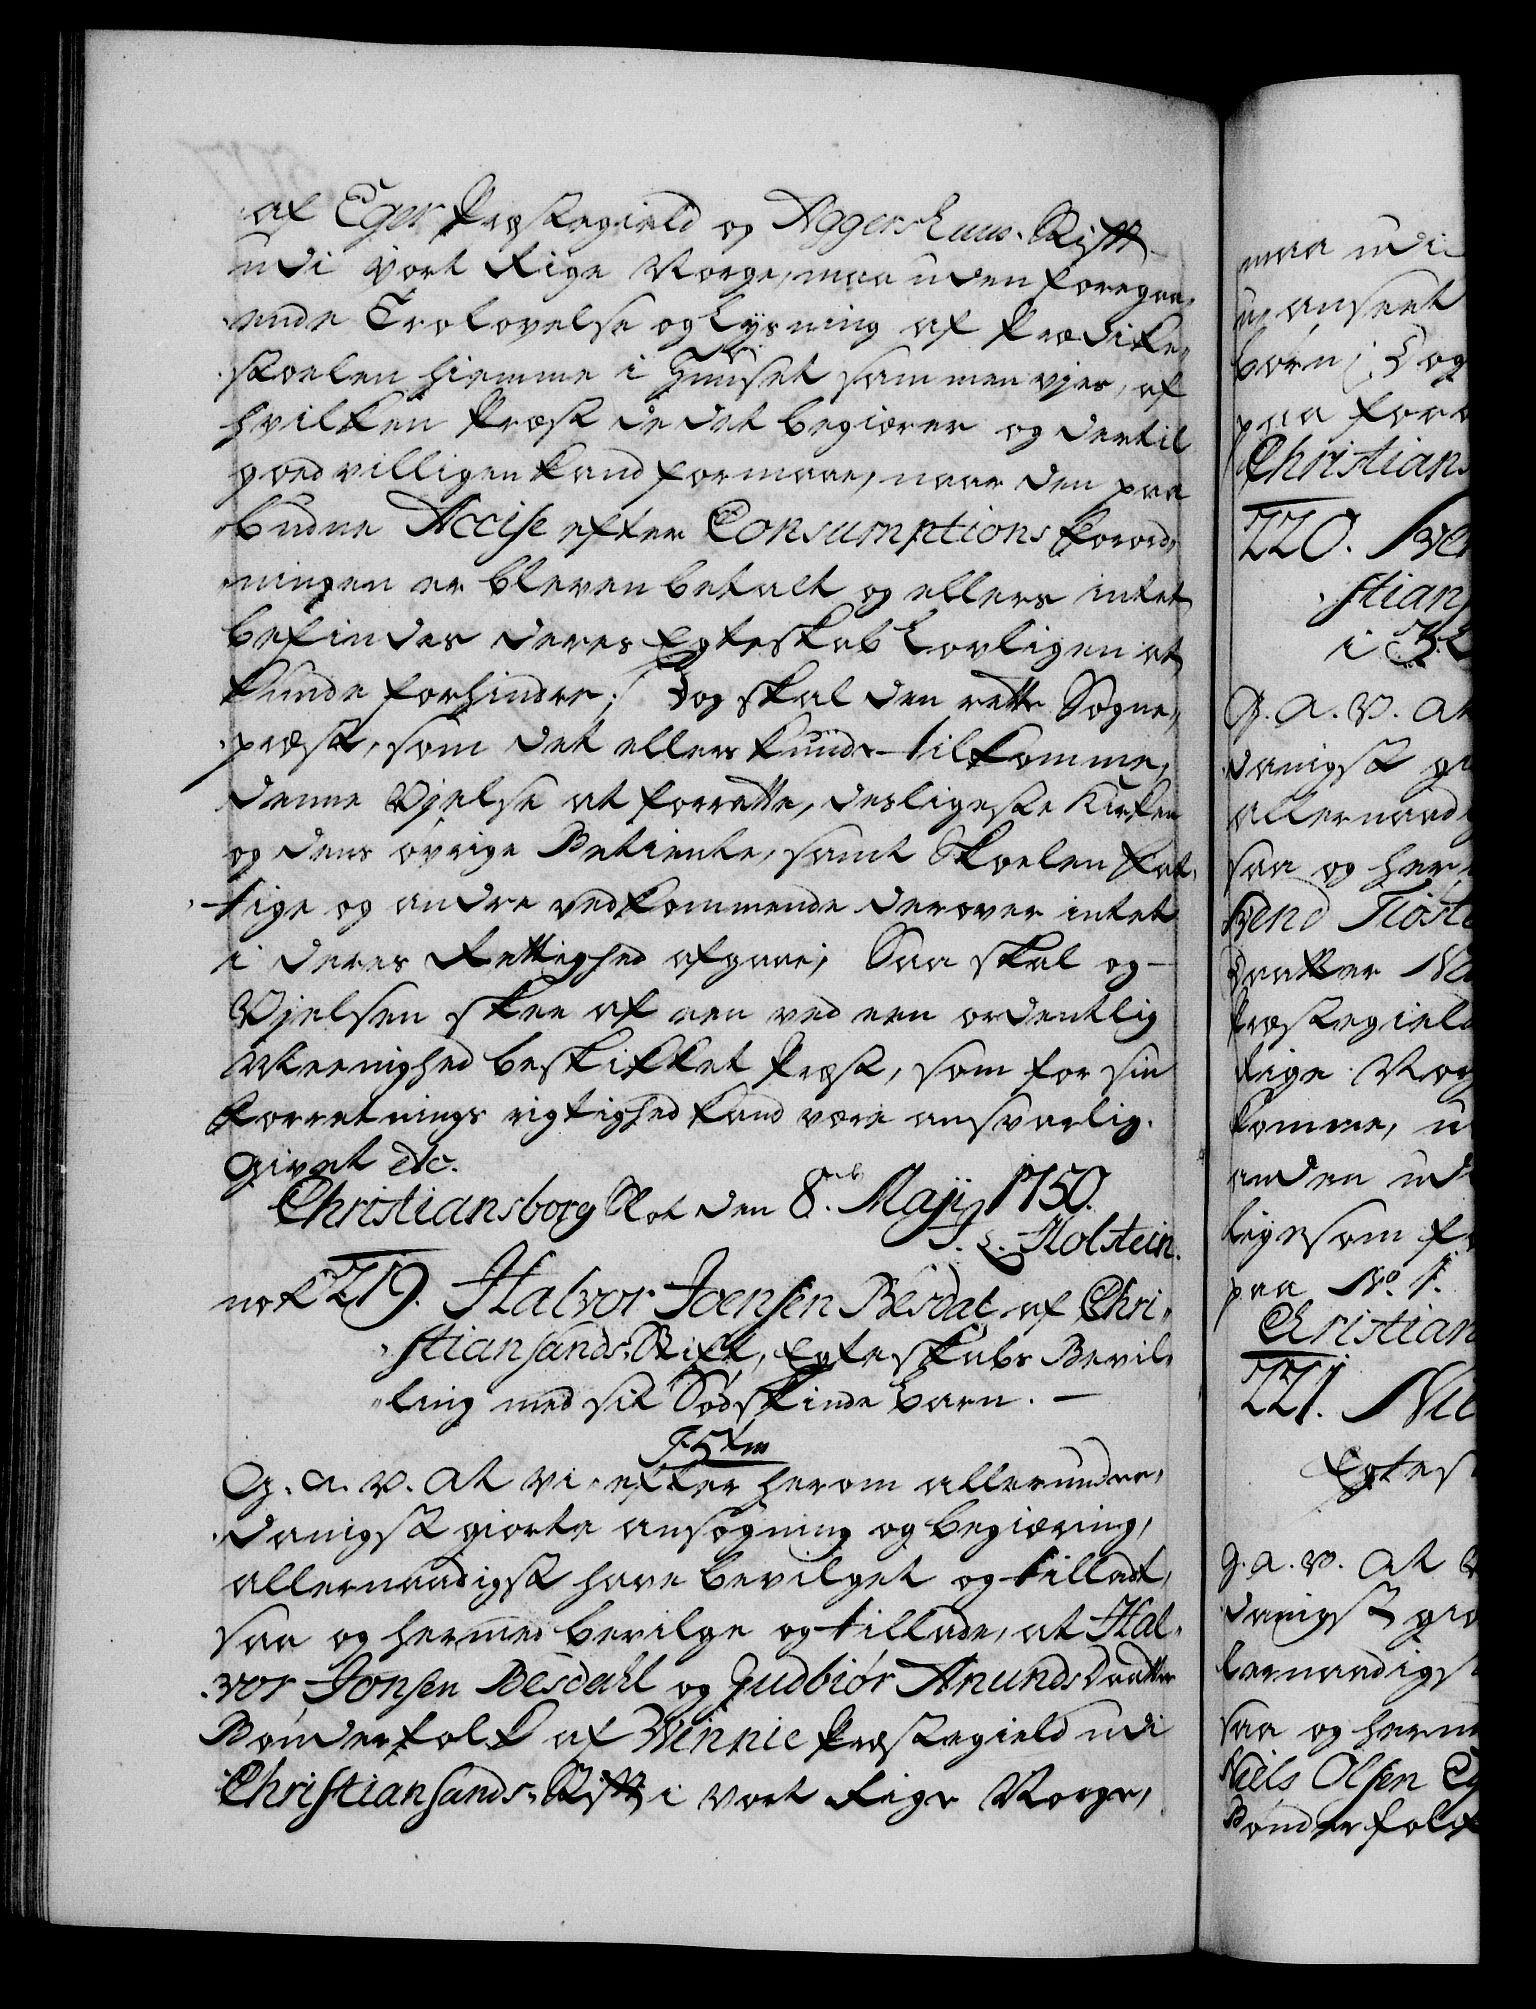 af Eger Præstegield og Aggershuus-Stift
udi vort Rige Norge, maa uden foregaa-
ende Trolovelse og Lysning af Prædike-
stoelen hiemme i Huuset sammenvies, af
hvilken Præst de det begiærer og dertil
goedvilligen kand formaae, naar den paa
budne Accise efter Consumptions Forord-
ningen er bleven betalt og ellers intet
befindes deres Egteskab Lovligen at
kunde forhindre; Dog skal den rette Sogne-
præst, som det ellers kunde tilkomme,
denne Vielse at forrette, desligeste Kirken
og dens øvrige Betiente, samt Skoelen Fat-
tige og andre vedkommende derover intet
i deres Rettighed afgaae; Saa skal og
Vielsen skee af een ved een ordentlig
Meenighed beskikket Præst, som for sin
Forretnings rigtighed kand være ansvarlig.
Givet etc.
Christiansborg Slot den 8. Maji 1750.
J. L. Holstein.
not 219. Halvor Joensen Besdal af Chri-
stiansands-Stift, Egteskabs Bevil-
ling med sit Sødskinde Barn.
G. A. V. At Vi efter herom allerunder-
danigst giorte ansøgning og begiæring,
allernaadigst have bevilget og tilladt,
saa og hermed bevilge og tillade, at Hal-
vor Jonsen Besdahl og Gudbiør Anunds Daatter
Bønderfolk af Vinnie Præstegield udi
Christiansands-Stift i vort Rige Norge,
maa udi
anseet
børn; Dog
paa for
Christians
220.
stians
i
G. A. V. At
danigst gi
allernaad
saa og her
Daatter
Præstegield
Rige Nor
komme, u
anden ud
ligesom f
paa No. 1.
Christian
221. Niel
Egtes
G. A. V. At V
danigst gio
lernaadigst
saa og herm
Niels Olsen
Bønderfolk